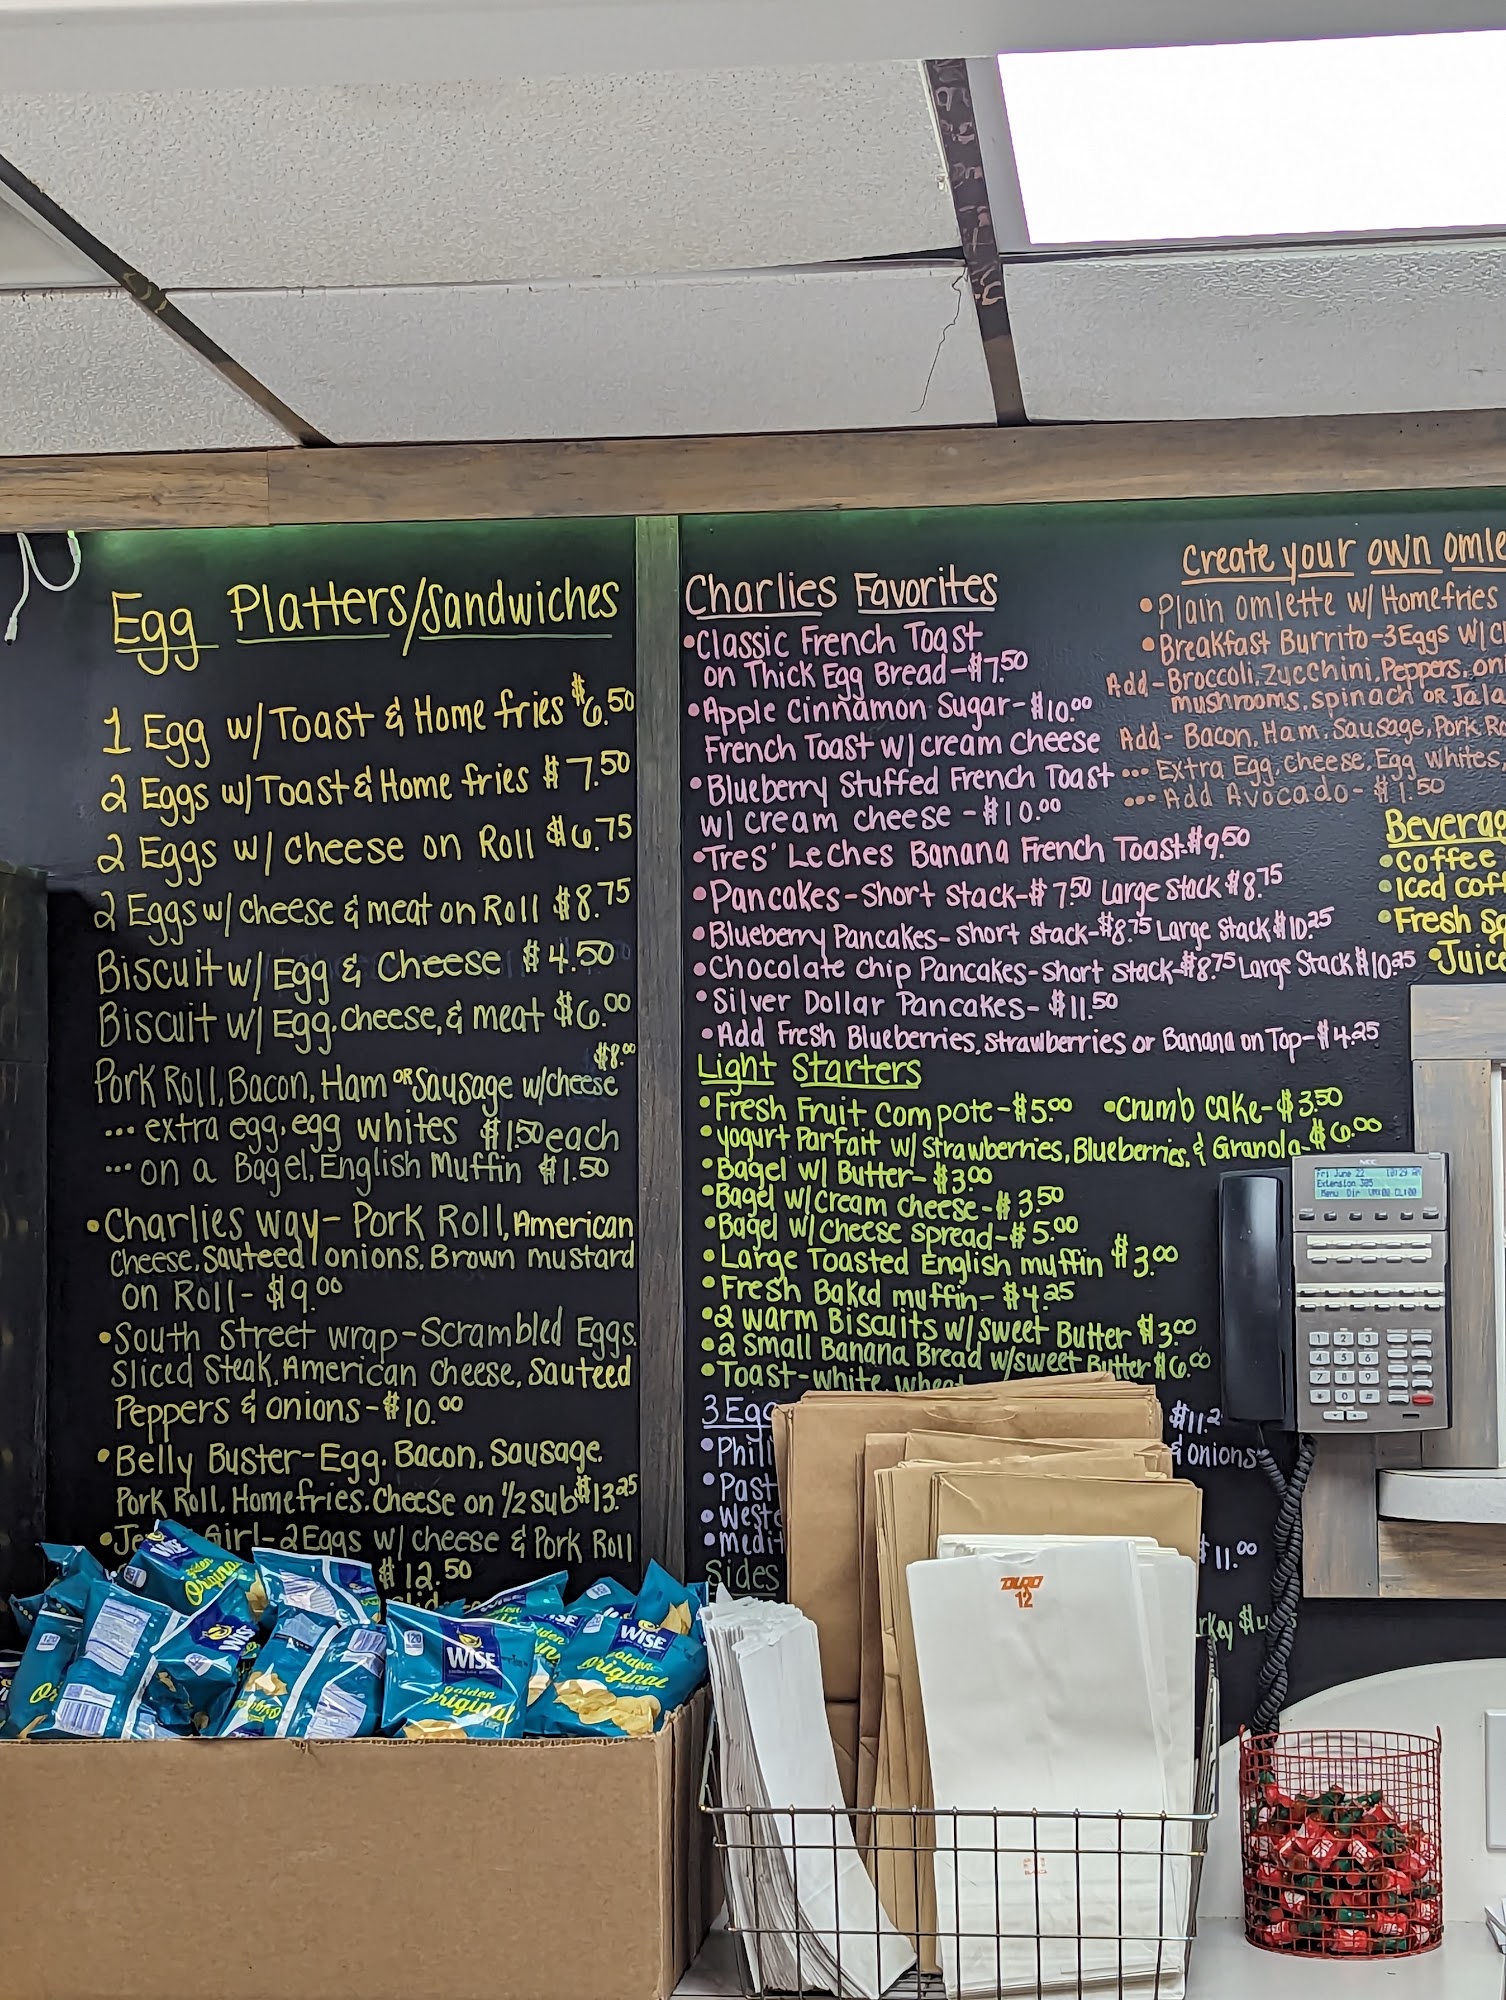 Egg Platters/Sandwiches
1 Egg w/ Toast & Home fries $6.50
2 Eggs w/ Toast & Home fries $7.50
2 Eggs w/ cheese on Roll $6.75
2 Eggs w/ cheese & meat on Roll $8.75
Biscuit w/ Egg & Cheese $4.50
Biscuit w/ Egg, cheese, & meat $6.00
$8.00
Pork Roll, Bacon, Ham OR Sausage w/cheese
... extra egg, egg whites $1.50 each
... on a Bagel, English Muffin $1.50
•Charlies way- Pork Roll, American
Cheese, Sauteed onions, Brown mustard
on Roll- $9.00
•South Street wrap-Scrambled Eggs,
Sliced Steak, American Cheese, Sauteed
Peppers & onions-$10.00
•Belly Buster-Egg, Bacon, Sausage,
Pork Roll, Homefries, Cheese on 1/2 sub $13.25
Girl-2 Eggs w/ cheese & Pork Roll
$12.50
Charlies Favorites
•Classic French Toast
on Thick Egg Bread-$7.50
•Apple Cinnamon Sugar-$10.00
French Toast w/ cream cheese
•Blueberry Stuffed French Toast
w/ cream cheese -$10.00
•Tres' Leches Banana French Toast-$9.50
•Pancakes-short stack-$7.50 Large Stack $8.75
•Blueberry Pancakes-short stack-$8.75 Large Stack $10.25
•Chocolate chip Pancakes-short stack-$8.75 Large Stack $10.25
•Silver Dollar Pancakes- $11.50
•Add Fresh Blueberries, strawberries or Banana on Top-$4.25
Light Starters
•Fresh Fruit compote-$5.00 •Crumb cake-$3.50
•yogurt Parfait w/ strawberries, Blueberries, & Granola-$6.00
•Bagel w/ Butter-$3.00
•Bagel w/cream cheese-$3.50
•Bagel w/ cheese spread-$5.00
•Large Toasted English muffin $3.00
•Fresh Baked muffin-$4.25
•2 warm Biscuits w/ sweet Butter $3.00
•2 Small Banana Bread w/sweet Butter $6.00
•Toast-white, wheat
3 Egg
& onions
$11.00
Sides
Create your own
•Plain omlette w/ Homefries
•Breakfast Burrito-3 Eggs w/
Add-Broccoli, Zucchini, Peppers,
mushrooms, spinach OR
Add- Bacon, Ham, Sausage, Pork
... Extra Egg, cheese, Egg whites,
... Add Avocado- $1.50
•Coffee
•Iced
•Fresh
•Juice
NEC
Fri June 22
Extension 305
Menu Dir
1 2 3
4 5 6
7 8 9
* 0 #
WISE
Golden
Original
WISE
golden
original
WISE
golden
original
120
DURO
12